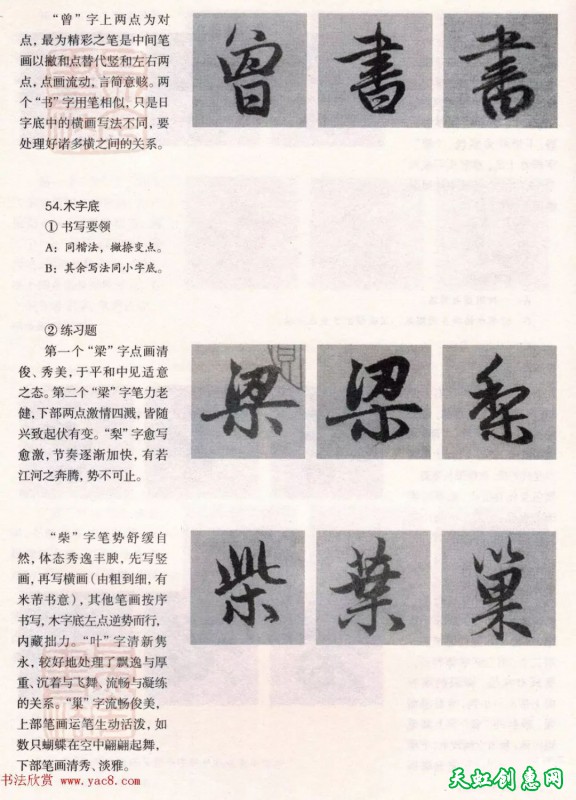 “曾”字上两点为对
点，最为精彩之笔是中间笔
画以撇和点替代竖和左右两
点，点画流动，言简意赅。两
个“书”字用笔相似，只是日
字底中的横画写法不同，要
处理好诸多横之间的关系。
曾 書 書
54.木字底
① 书写要领
A：同楷法，撇捺变点。
B：其余写法同小字底。
② 练习题
第一个“梁”字点画清
俊、秀美，于平和中见适意
之态。第二个“梁”字笔力老
健，下部两点激情四溅，皆随
兴致起伏有变。“梨”字愈写
愈激，节奏逐渐加快，有若
江河之奔腾，势不可止。
梁 梁 梨
“柴”字笔势舒缓自
然，体态秀逸丰腴，先写竖
画，再写横画（由粗到细，有
米芾书意），其他笔画按序
书写，木字底左点逆势而行，
内藏拙力。“叶”字清新隽
永，较好地处理了飘逸与厚
重、沉着与飞舞、流畅与凝练
的关系。“巢”字流畅俊美，
上部笔画运笔生动活泼，如
数只蝴蝶在空中翩翩起舞，
下部笔画清秀、淡雅。
柴 葉 巢
书法欣赏 www.yac8.com
天虹创意网